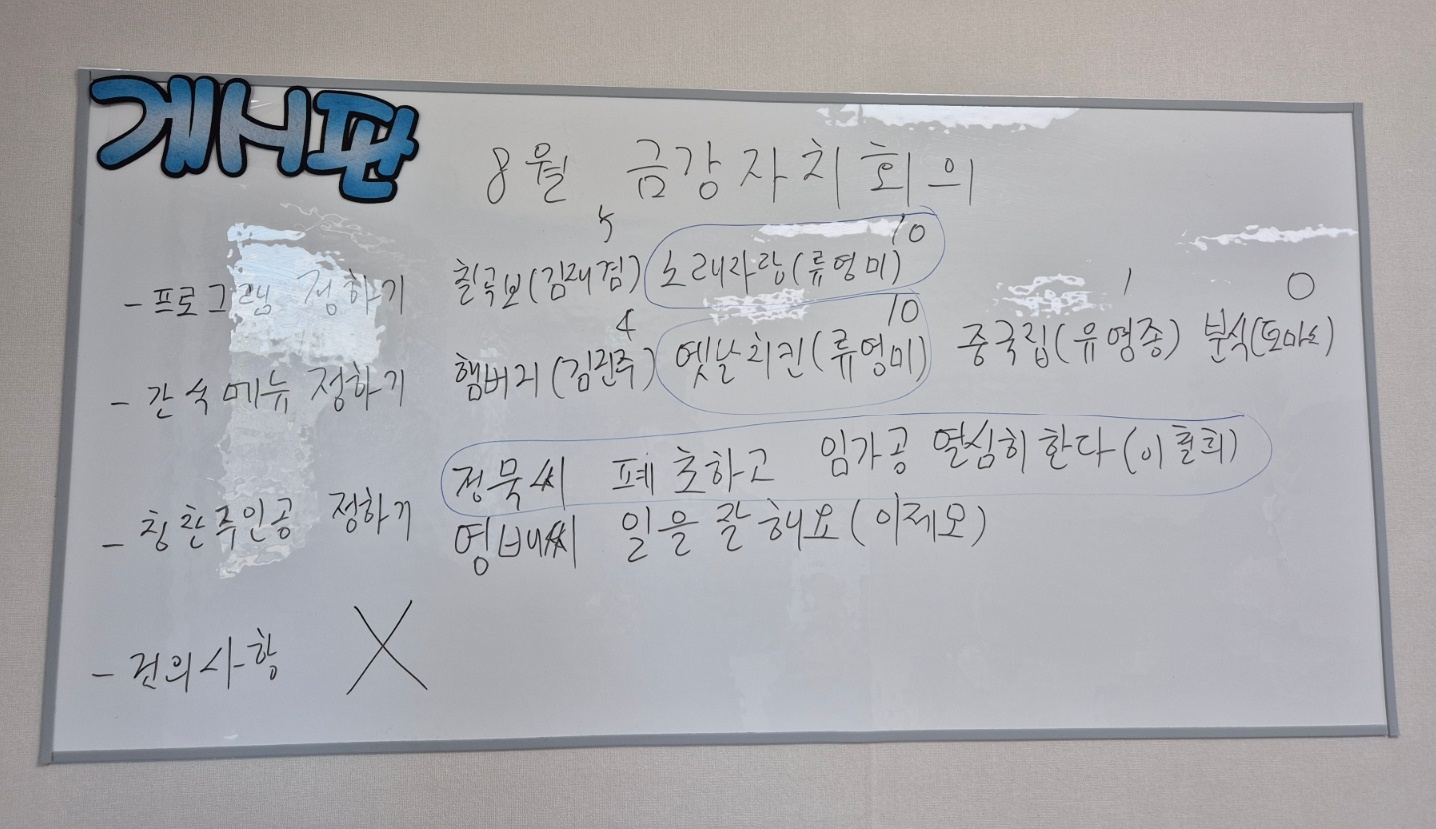 게시판
8월 금강자치회의
5 10
- 프로그램 정하기 칠극보(김래겸) 노래자랑(류영미)
4 10 1 0
- 간식메뉴 정하기 햄버거(김진주) 옛날치킨(류영미) 중국집(유영종) 분식(토마스)
정묵씨 폐 초하고 임가공 열심히 한다(이훈희)
- 칭찬주인공 정하기 영배씨 일을 잘해요(이제모)
- 건의사항 X